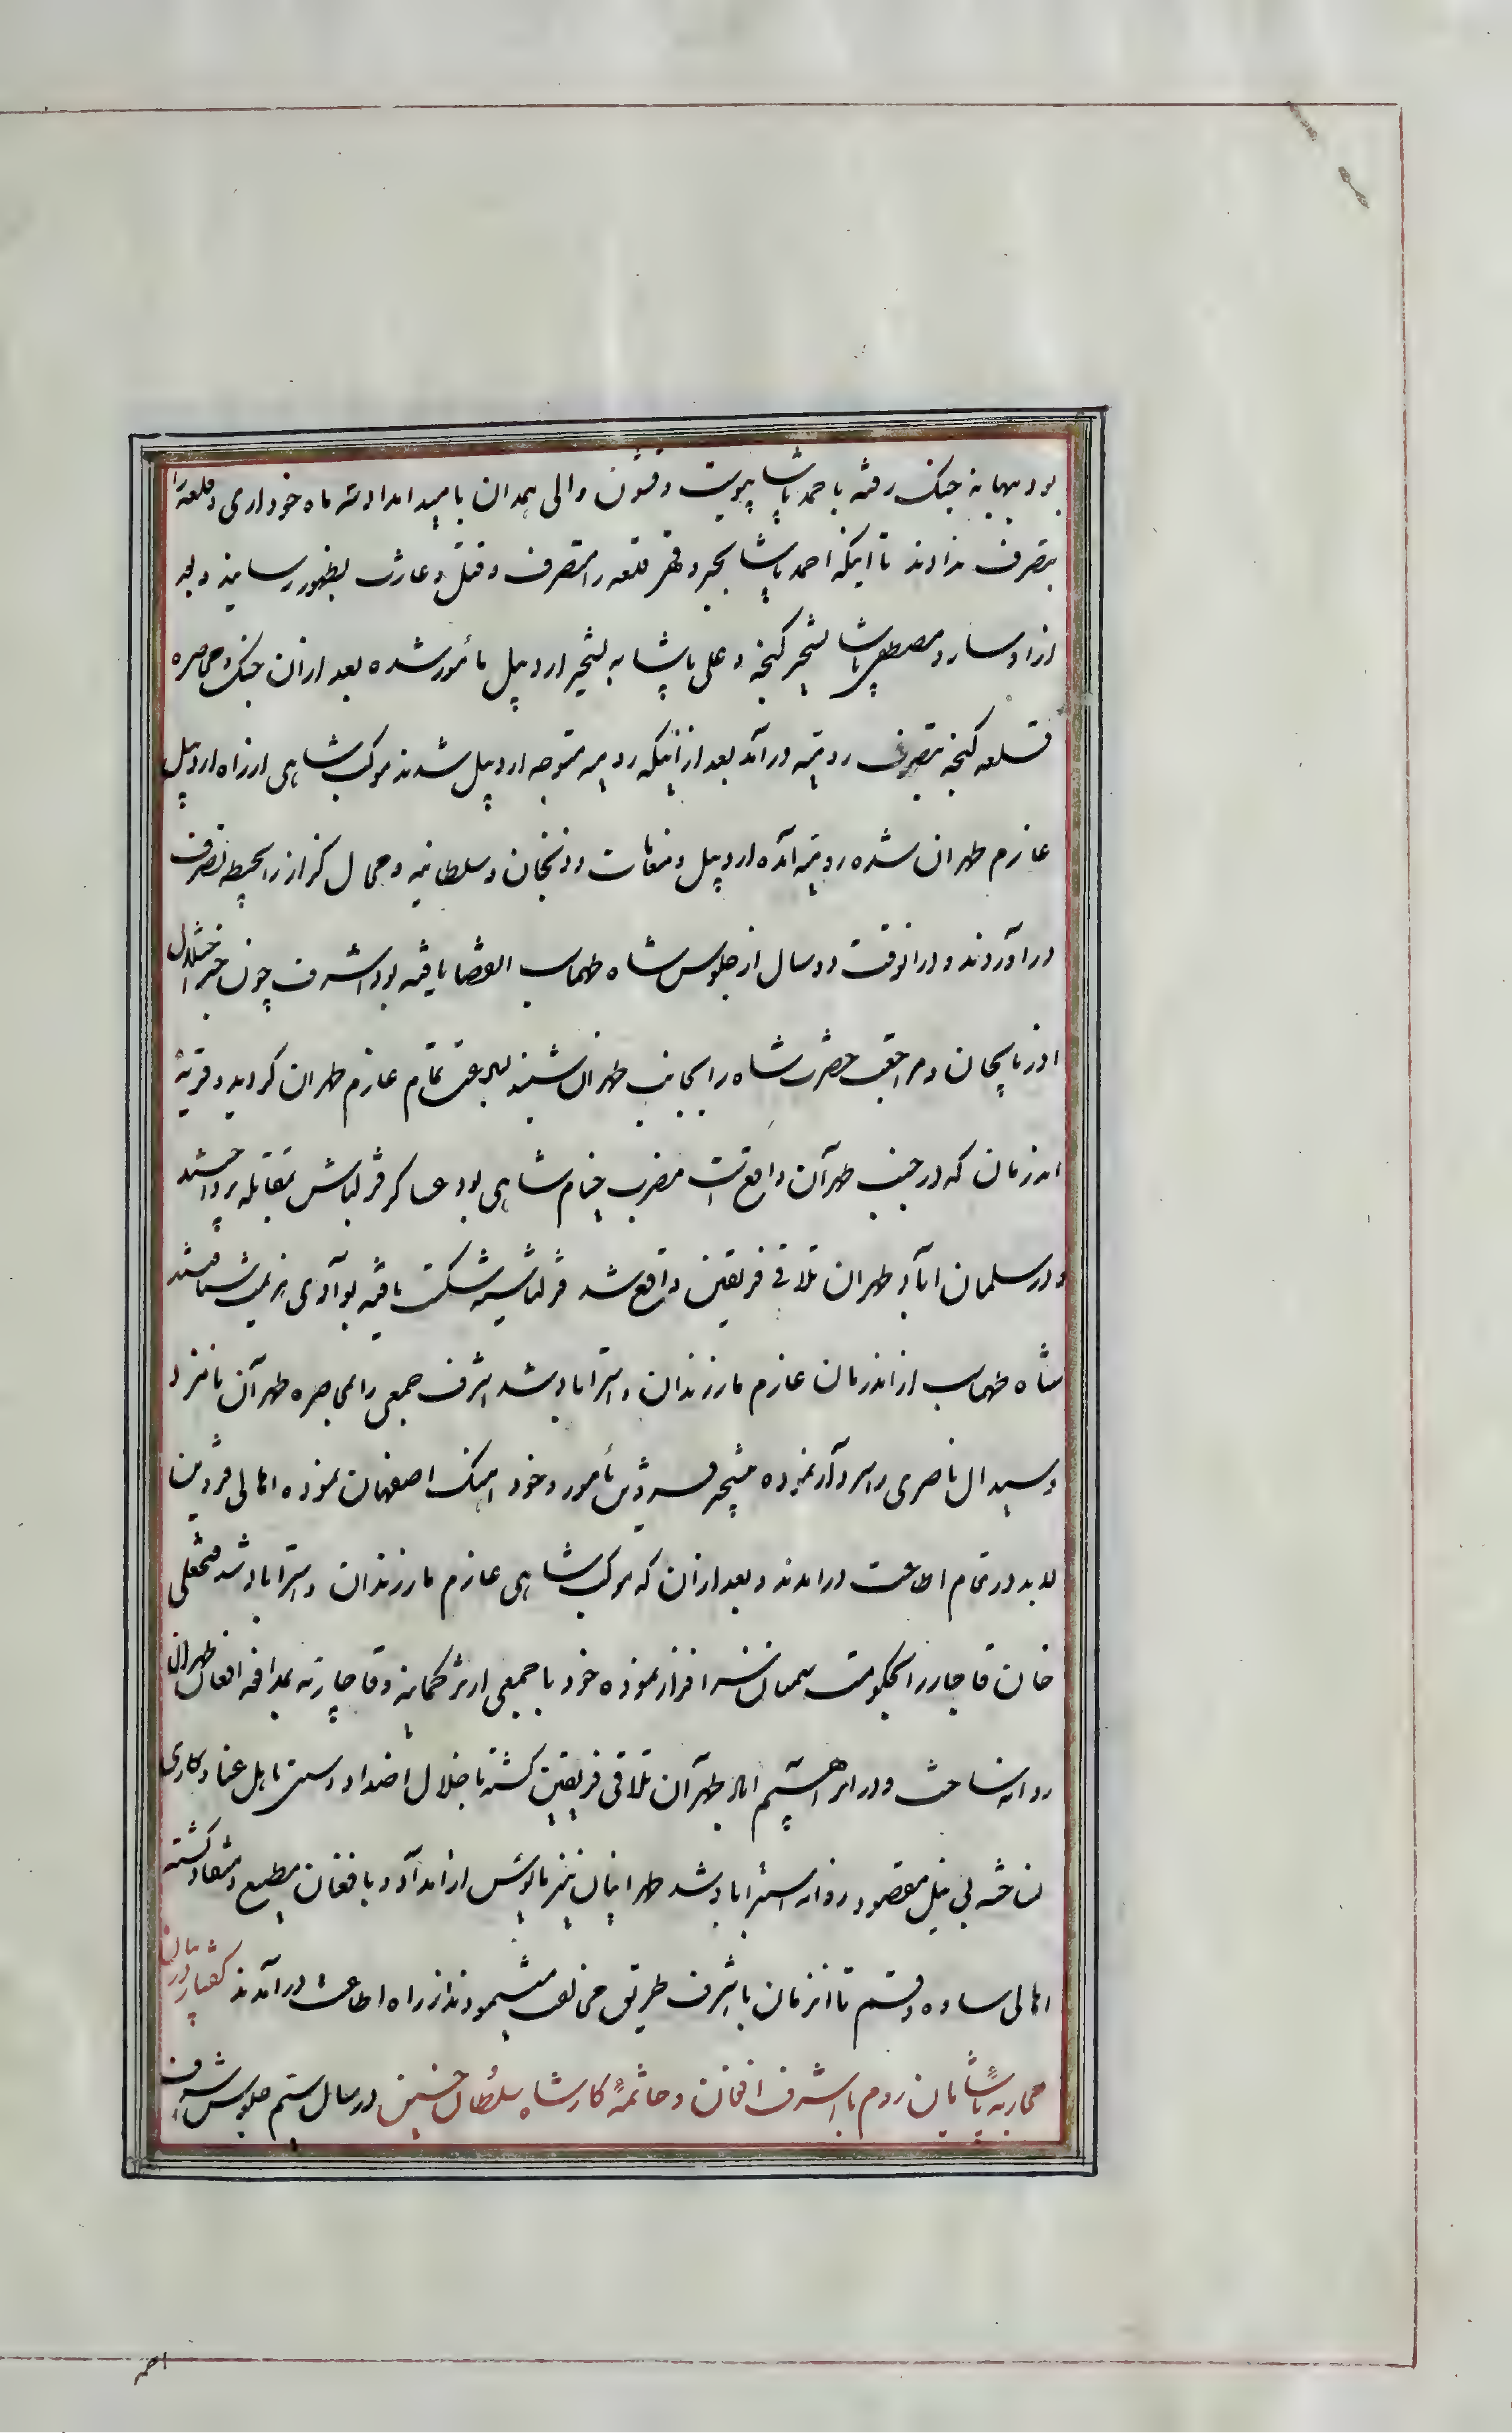 بود ببهانه جنک رفته باحمد پاشا پیوست و قشون والی همدان بامید امداد سه ماه خودداری و قلعه را
بتصرف ندادند تا اینکه احمد پاشا بجبر و قهر قلعه را متصرف و قتل و غارت بظهور رسانید و
از او سارو مصطفی پاشا بتسخیر کنجه و علی پاشا به تسخیر اردبیل مأمور شده بعد از ان جنک و محاصره
قلعه کنجه بتصرف رومیه درآمد بعد از انیکه رومیه متوجه اردبیل شدند موکب شاهی از راه اردبیل
عازم طهران شده رومیه آمده اردبیل و مغانات و زنجان و سلطانیه و محال کزاز را بحیطه تصرف
دراوردند و درانوقت دو سال از جلوس شاه طهماسب انقضا یافته بود اشرف چون خبر اختلال
اذربایجان و مراجعت حضرت شاه را بجانب طهران شنید بسرعت تمام عازم طهران کردید و قریهٔ
اندرمان که در جنب طهران واقع است مضرب خیام شاهی بود عساکر قزلباش بمقابله پرداختند
و در سلمان اباد طهران تلاقی فریقین واقع شد قزلباشیه شکست یافته بوادی هزیمت شتافتند
شاه طهماسب از اندرمان عازم مازندران و استراباد شد اشرف جمعی را بمحاصره طهران نامزد
و سیدال ناصری را سردار نموده بتسخیر قزوین مأمور و خود اهنک اصفهان نموده اهالی قزوین
لابد در مقام اطاعت درامدند و بعد از ان که موکب شاهی عازم مازندران و استراباد شد فتحعلی
خان قاجار را بحکومت سمنان سرافراز نموده خود با جمعی از ترکمانیه و قاجاریه بمدافعه افغان طهران
روانه ساخت و در ابراهیم اباد طهران تلاقی فریقین کشته باخلال اضداد و سستی اهل عناد کاری
نساخته بی نیل مقصود روانه استراباد شد طهرانیان نیز مایوس از امداد و بافغان مطیع و منقاد کشته
اهالی ساوه و قم تا انزمان با اشرف طریق مخالفت میپیمودند از راه اطاعت درآمدند کفتار در بیان
محاربهٔ پاشایان روم با اشرف افغان و خاتمهٔ کار شاه سلطان حسین در سال سیم جلوس اشرف
احمد